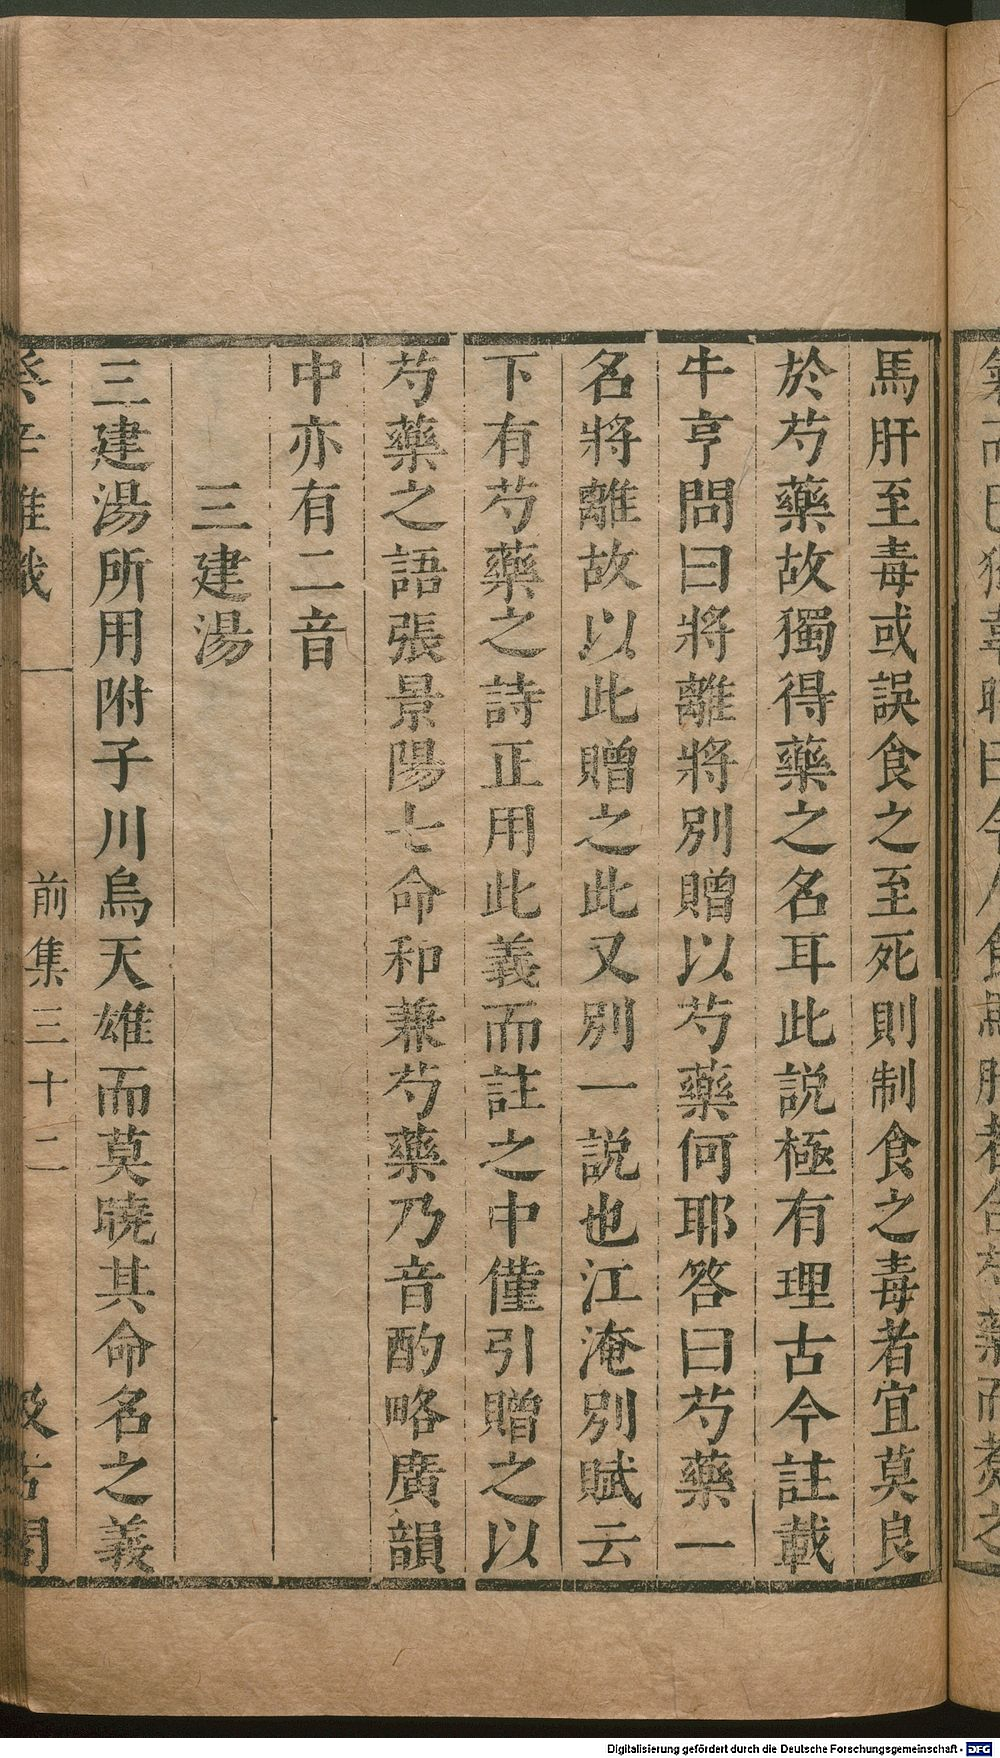 馬肝至毒或誤食之至死則制食之毒者宜莫良
於芍藥故獨得藥之名耳此説極有理古今註載
牛亨問曰將離將别贈以芍藥何耶答曰芍藥一
名將離故以此贈之此又别一説也江淹别賦云
下有芍藥之詩正用此義而註之中僅引贈之以
芍藥之語張景陽七命和兼芍藥乃音酌略廣韻
中亦有二音
三建湯
三建湯所用附子川烏天雄而莫曉其命名之義
前集三十二
Digitalisierung gefördert durch die Deutsche Forschungsgemeinschaft - DFG